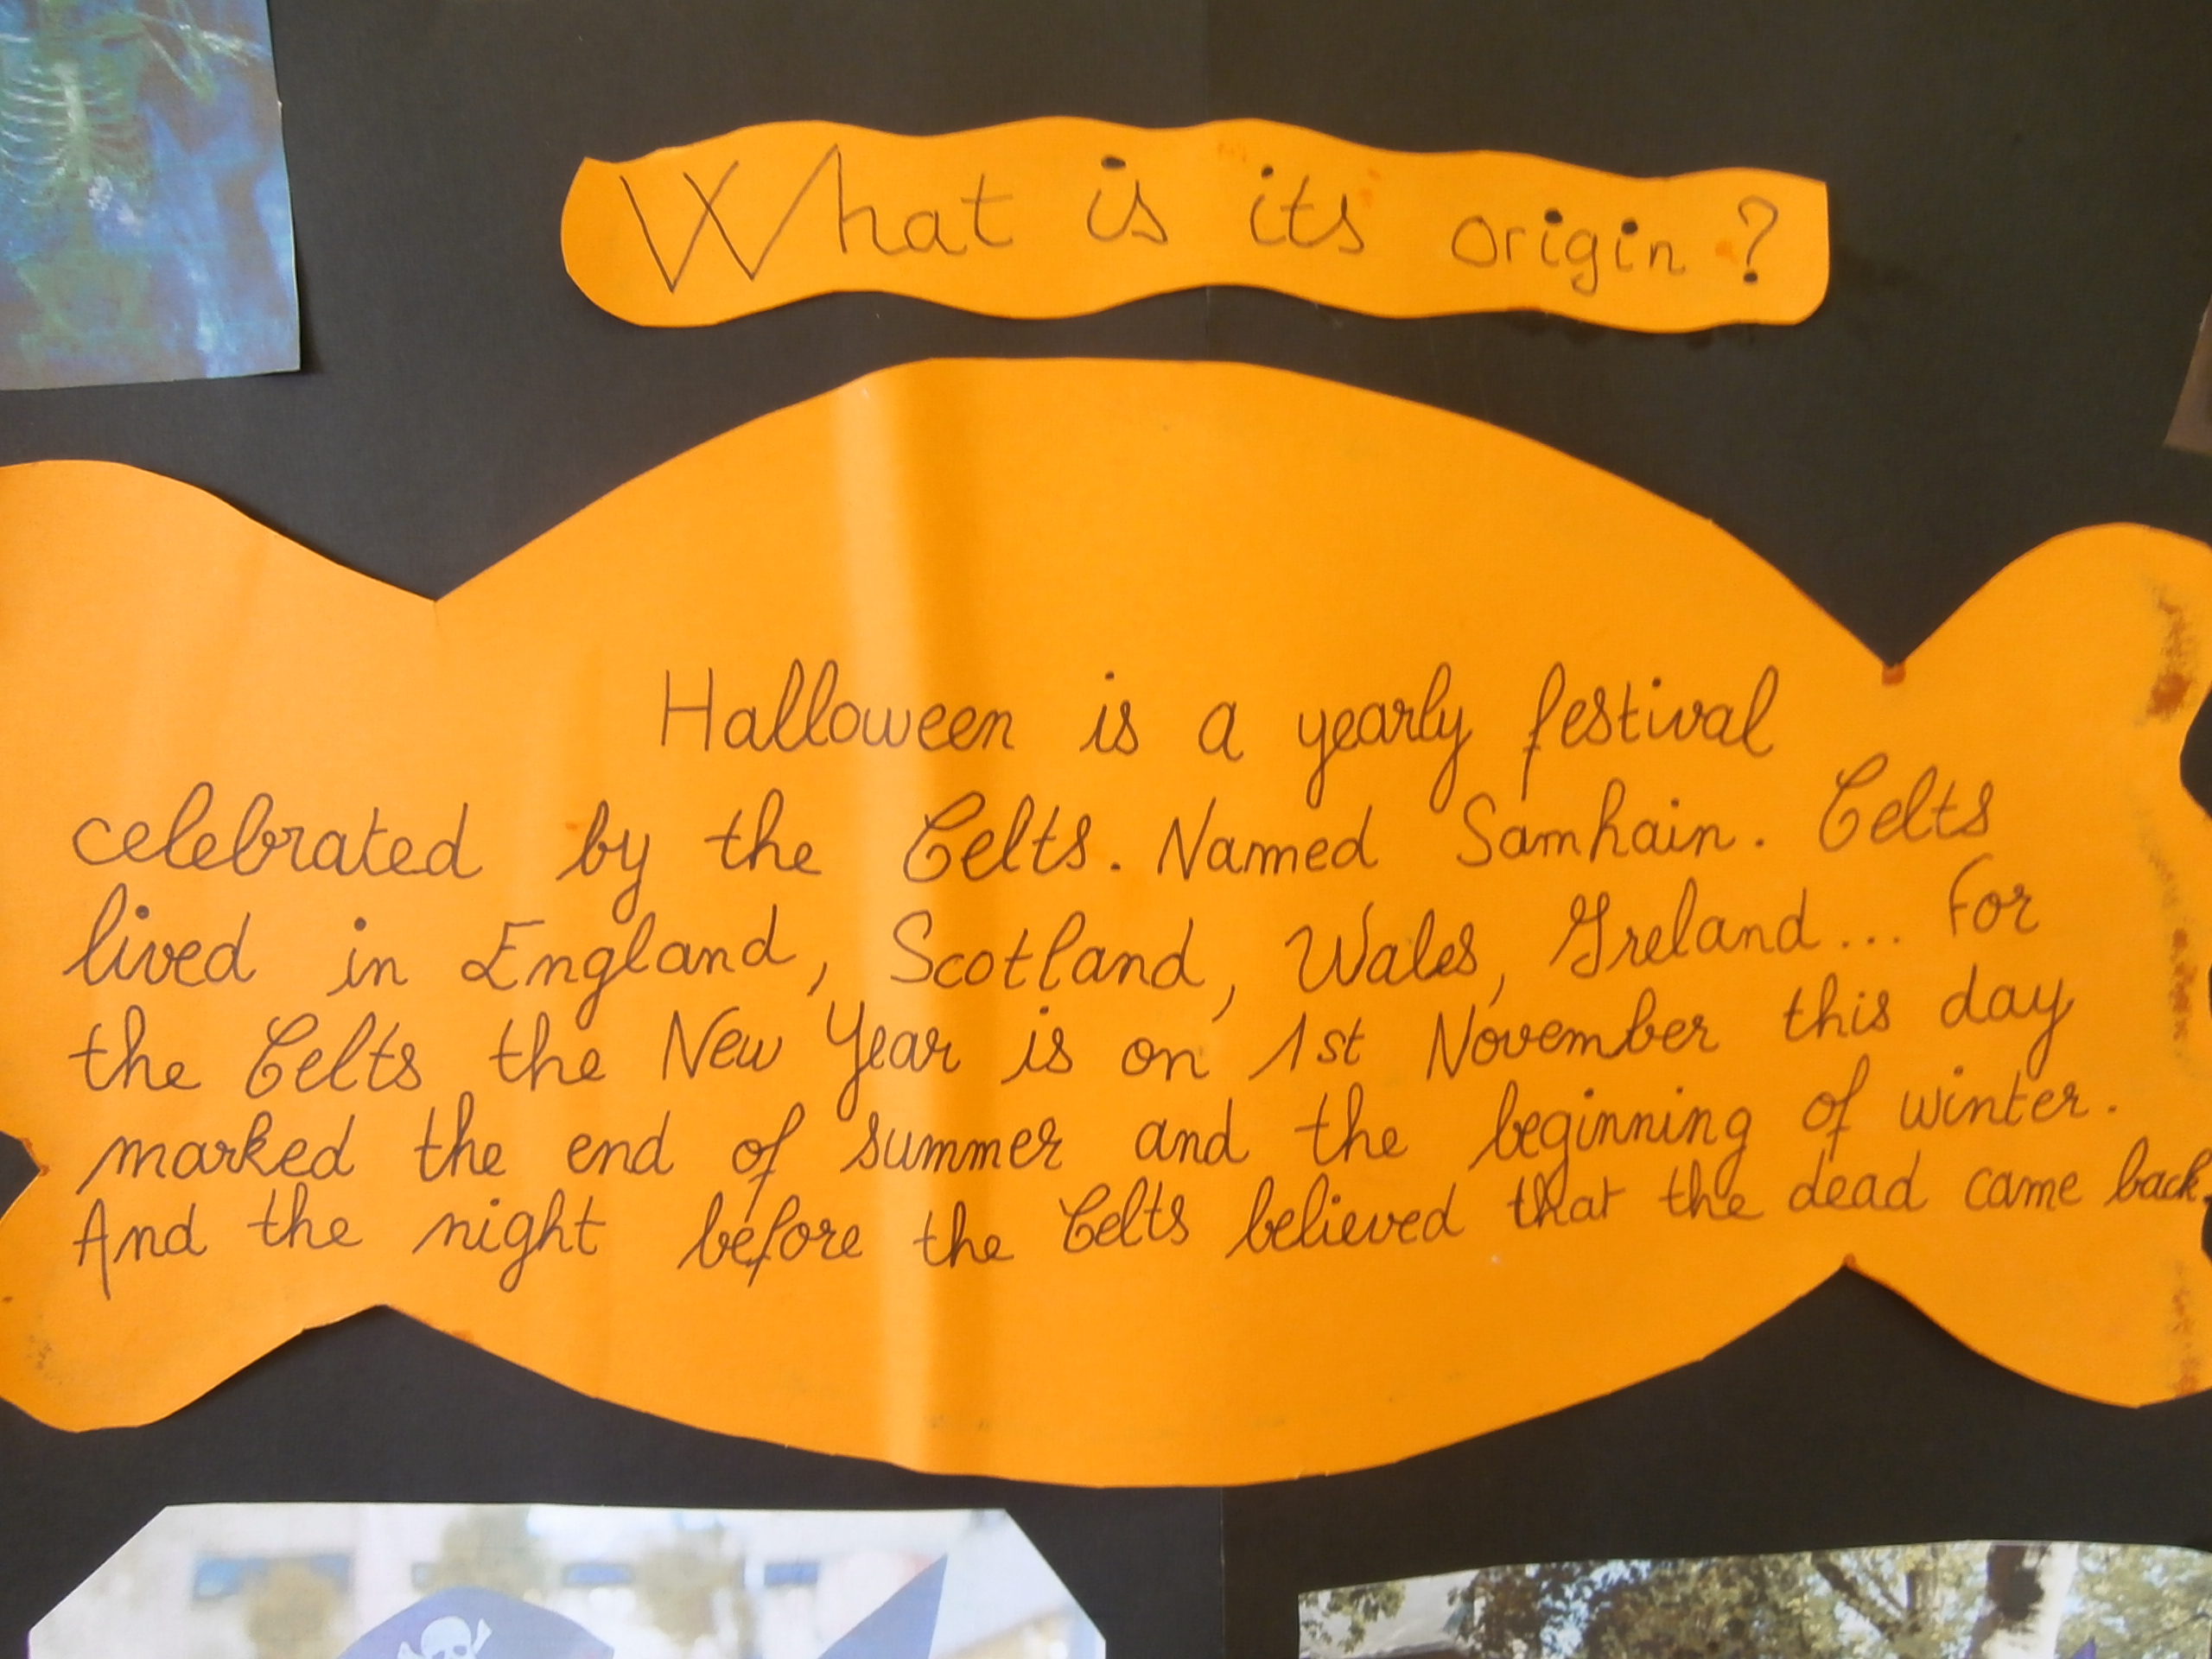 What is its origin ?
Halloween is a yearly festival
celebrated by the Celts. Named Samhain. Celts
lived in England, Scotland, Wales, Ireland... For
the Celts the New Year is on 1st November this day
marked the end of summer and the beginning of winter.
And the night before the Celts believed that the dead came back.